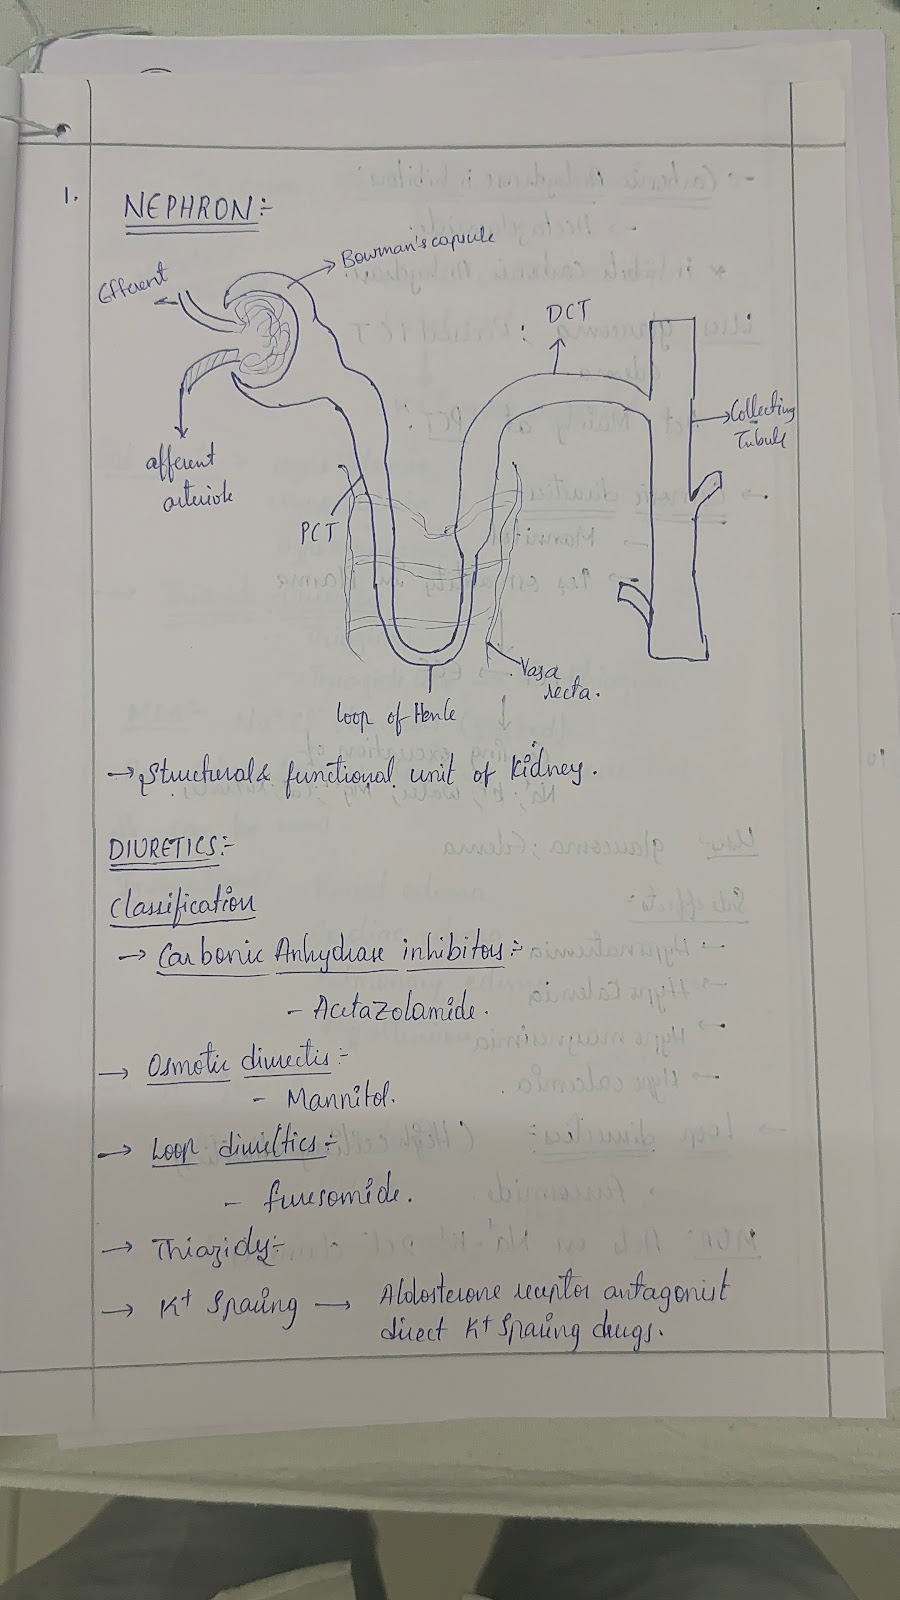 1.
NEPHRON:-
Efferent
Bowman's capsule
DCT
Collecting
Tubule
afferent
arteriole
PCT
Vasa
recta.
loop of Henle
→ Structural & functional unit of Kidney.
DIURETICS:-
Classification
→ Carbonic Anhydrase inhibitors:-
- Acetazolamide.
→ Osmotic diuretics:-
- Mannitol.
→ Loop diuretics:-
- furesomide.
→ Thiazides:-
→ K+ Sparing → Aldosterone receptor antagonist
direct K+ Sparing drugs.